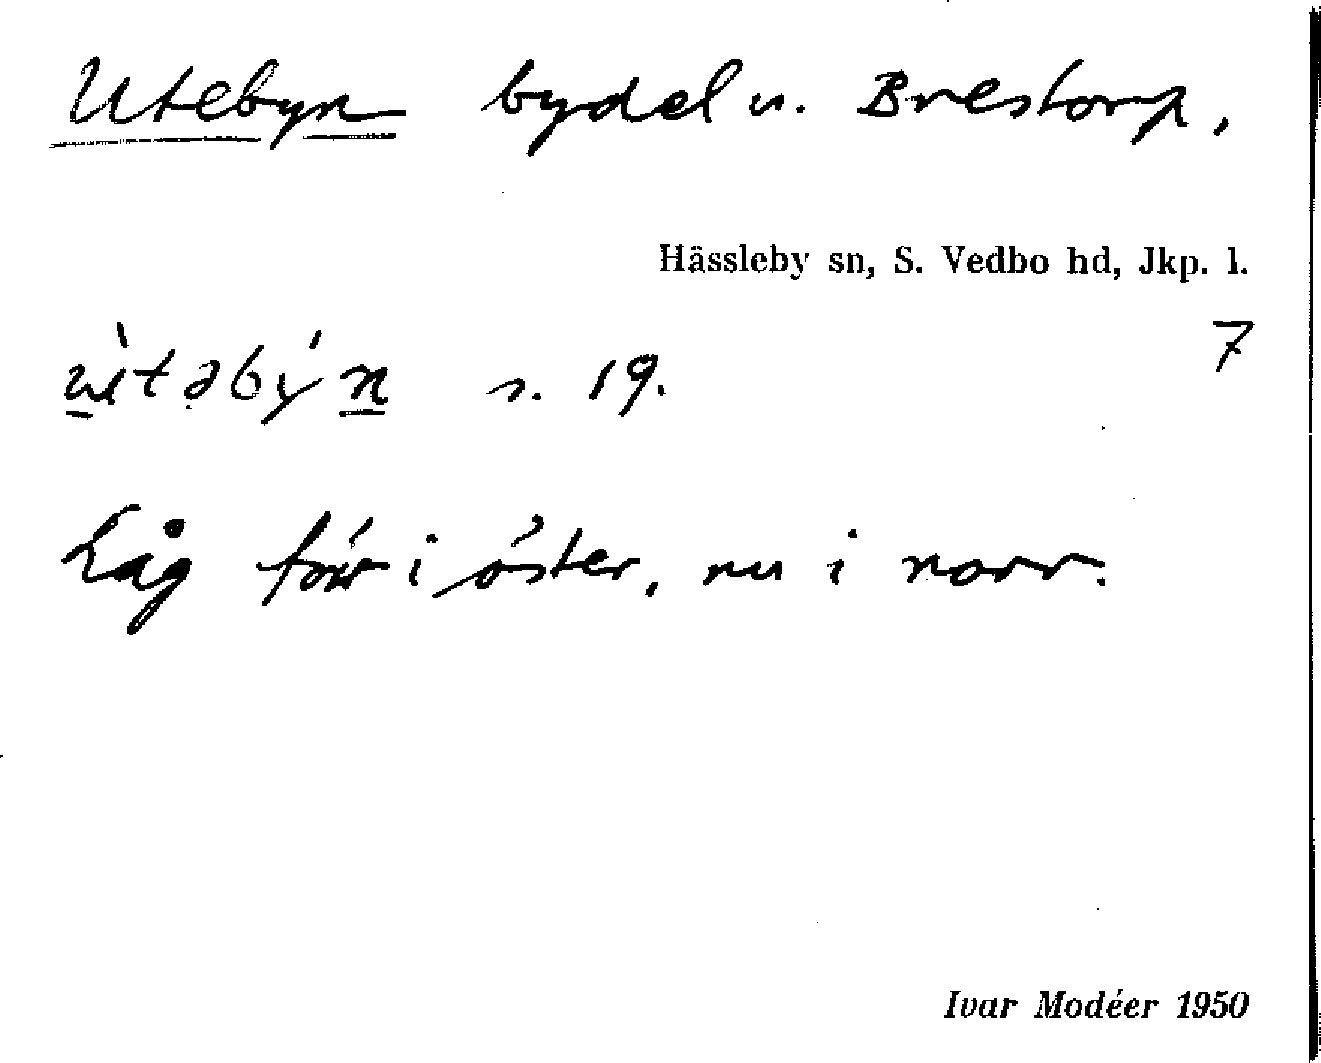 Utebyn bydel u. Brestorp,
Hässleby sn, S. Vedbo hd, Jkp. l.
7
ùtəbýn s. 19.
Låg förr i öster, nu i norr.
Ivar Modéer 1950